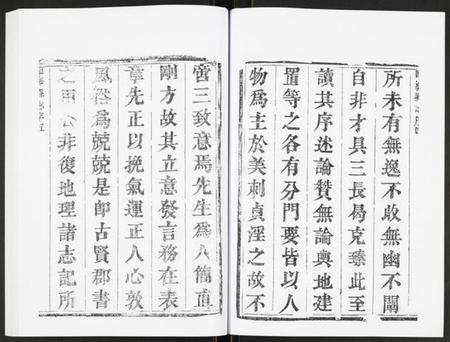 所未有無逸不收無幽不闡
自非才具三長曷克臻此至
讀其序述論贊無論輿地建
置等之各有分門要皆以人
物爲主於美刺貞淫之故不
啻三致意焉先生爲人簡直
剛方故其立意發言務在表
章先正以挽氣運正人心敦
風俗爲兢兢是卽古賢郡書
之 非復地理諸志記所